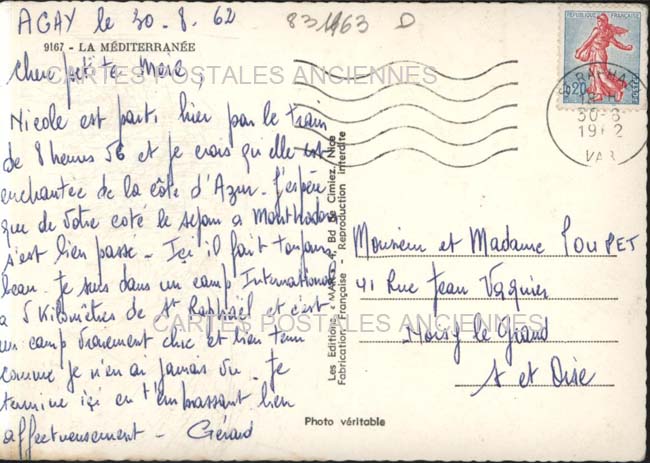 AGAY le 30-8-62
83463 D
9167 - LA MÉDITERRANÉE
Cher petite Mère,
CARTES POSTALES ANCIENNES
Nicole est parti hier par le train
de 8 heures 56 et je crois qu'elle est
enchantée de la côte d'Azur - J'espère
que de votre coté le sejour a
s'est bien passé - Içi il fait toujours
beau - Je suis dans un camp International
a 5 kilomètres de St Raphaël et c'est
CARTES POSTALES ANCIENNES
un camp vraiement chic et bien tenu
comme je n'en ai jamais vu - Je
termine içi en t'embrassant bien
affectueusement - Gérard
Les Editions "MAR", 1, Bd de Cimiez, Nice
Fabrication Française - Reproduction interdite
Photo véritable
RÉPUBLIQUE FRANÇAISE
0,20
POSTES
30-8
1962
VAR
Monsieur et Madame POUPET
41 Rue Jean Vaquier
Noisy le Grand
S et Oise